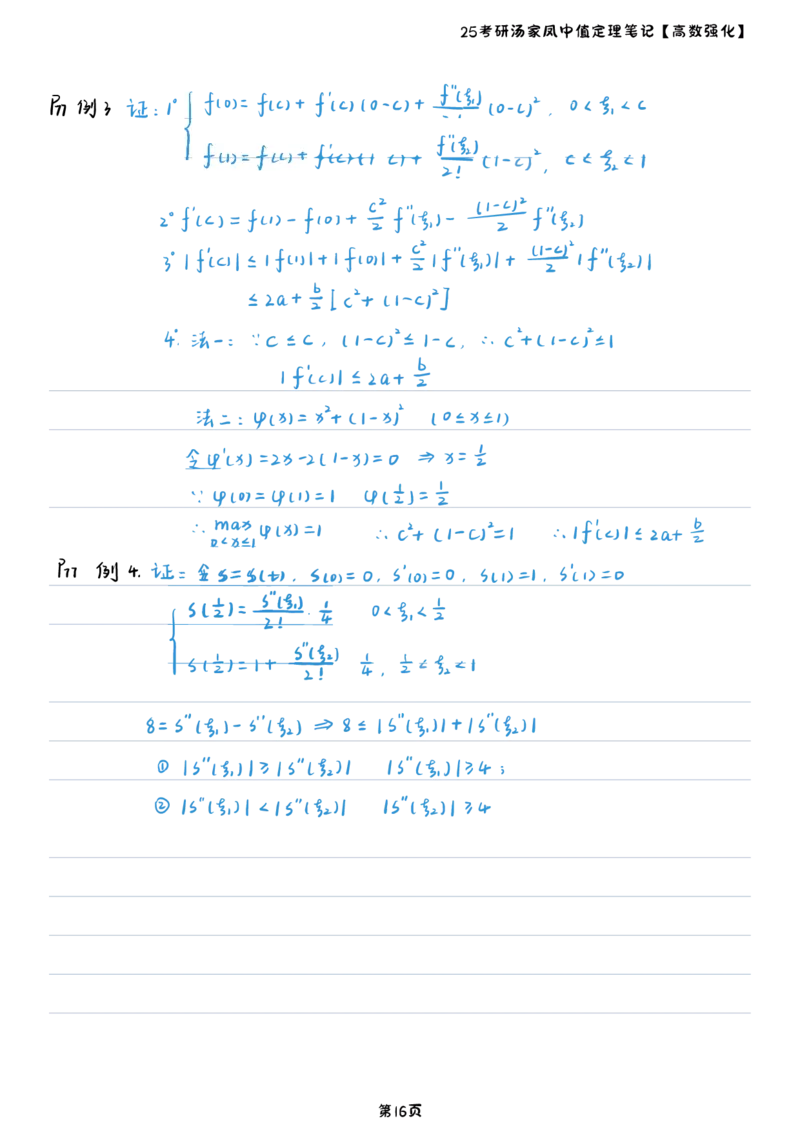 25考研汤家凤中值定理笔记【高数强化】
P71 例3 证：1° { f(0)=f(c)+f'(c)(0-c)+ f''(ξ₁)/2! (0-c)², 0<ξ₁<c
f(1)=f(c)+f'(c)(1-c)+ f''(ξ₂)/2! (1-c)², c<ξ₂<1
2° f'(c)=f(1)-f(0)+ c²/2 f''(ξ₁)- (1-c)²/2 f''(ξ₂)
3° |f'(c)|≤|f(1)|+|f(0)|+ c²/2 |f''(ξ₁)|+ (1-c)²/2 |f''(ξ₂)|
≤2a+ b/2 [c²+(1-c)²]
4°. 法一：∵c²≤c, (1-c)²≤1-c, ∴c²+(1-c)²≤1
|f'(c)|≤2a+ b/2
法二：φ(x)=x²+(1-x)² (0≤x≤1)
令φ'(x)=2x-2(1-x)=0 ⇒ x= 1/2
∵φ(0)=φ(1)=1 φ(1/2)= 1/2
∴ max 0<x≤1 φ(x)=1 ∴c²+(1-c)²=1 ∴|f'(c)|≤2a+ b/2
例4. 证：令S=S(t), S(0)=0, S'(0)=0, S(1)=1, S'(1)=0
{ S(1/2)= S''(ξ₁)/2! · 1/4 0<ξ₁<1/2
S(1/2)=1+ S''(ξ₂)/2! 1/4, 1/2<ξ₂<1
8=S''(ξ₁)-S''(ξ₂) ⇒ 8≤|S''(ξ₁)|+|S''(ξ₂)|
① |S''(ξ₁)|≥|S''(ξ₂)| |S''(ξ₁)|≥4;
② |S''(ξ₁)|<|S''(ξ₂)| |S''(ξ₂)|≥4
第16页